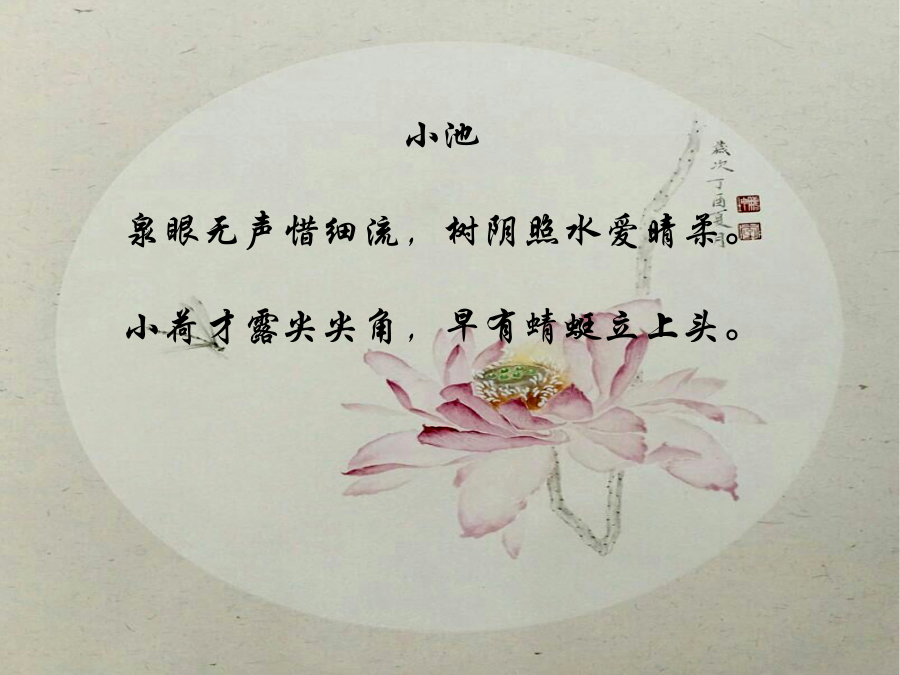 小池
泉眼无声惜细流，树阴照水爱晴柔。
小荷才露尖尖角，早有蜻蜓立上头。
歲次丁酉夏月